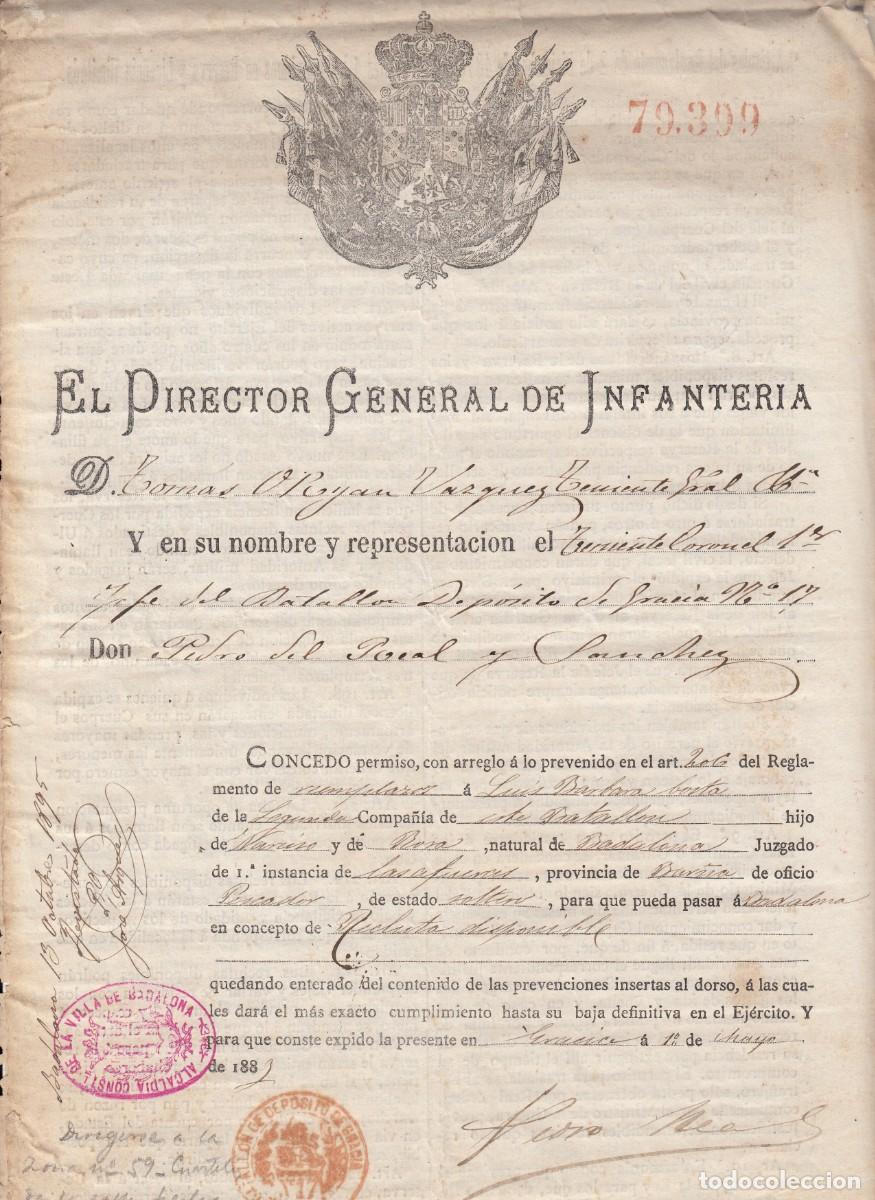 79.399
EL DIRECTOR GENERAL DE INFANTERIA
D. Tomás O'Ryan Vazquez Teniente Gral
Y en su nombre y representacion el Teniente Coronel 1er
Jefe del Batallon Depósito de Gracia No 17
Don Pedro del Real y Sanchez
CONCEDO permiso, con arreglo á lo prevenido en el art. 206 del Regla-
mento de reemplazos á Luis Bárbara
de la Segunda Compañía de este Batallon hijo
de y de Rosa, natural de Badalona Juzgado
de 1.ª instancia de las afueras, provincia de Barna de oficio
Pescador, de estado soltero, para que pueda pasar á Badalona
en concepto de Recluta disponible
quedando enterado del contenido de las prevenciones insertas al dorso, á las cua-
les dará el más exacto cumplimiento hasta su baja definitiva en el Ejército. Y
para que conste expido la presente en Gracia á 1º de Mayo
de 188
Pedro Real
Badalona 13 Octubre 1895
Registrada
ALCALDIA CONSTL DE LA VILLA DE BADALONA
BATALLON DE DEPÓSITO DE GRACIA
17
Dirigirse a la
Zona nº 59 - Cuartel
todocoleccion
todocoleccion.net